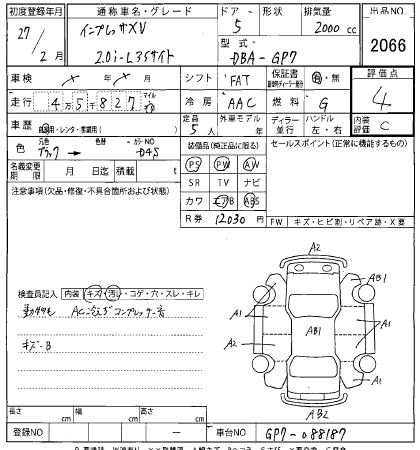 初度登録年月 通称車名・グレード ドア 形状 排気量 出品NO
27/2月 インプレッサXV 2.0i-L アイサイト 5 2000 cc 2066
型式 DBA-GP7
車検 × 月 × 日 シフト FAT 保証書 有・無 評価点 4
走行 4万5千827 マイル 冷房 AAC 燃料 G
車歴 自家用・レンタ・事業用 定員 5人 外車モデル ディーラー 並行 ハンドル 左・右 内装評価 C
色 元色 ブラック 色替 カラーNO D4S 装備品(純正品に限る) セールスポイント(正常に機能するもの)
名義変更期限 月 日迄 積載 PS PW AW
注意事項(欠品・修復・不具合箇所および状態) SR TV ナビ
カワ エアB ABS
R券 12030 円 FW キズ・ヒビ割・リペア跡・X要
A2
AB1
A1
A1
AB1
A2
A1
AB2
検査員記入 内装 キズ・汚れ・コゲ・穴・スレ・キレ
キズ-B
長さ cm 幅 cm 高さ cm
登録NO — 車台NO GP7-088187